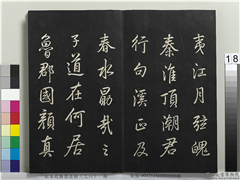 夷江月弦魄
秦淮頂潮君
行句溪正及
春水勗哉之
子道在何居
魯郡國顏真
18